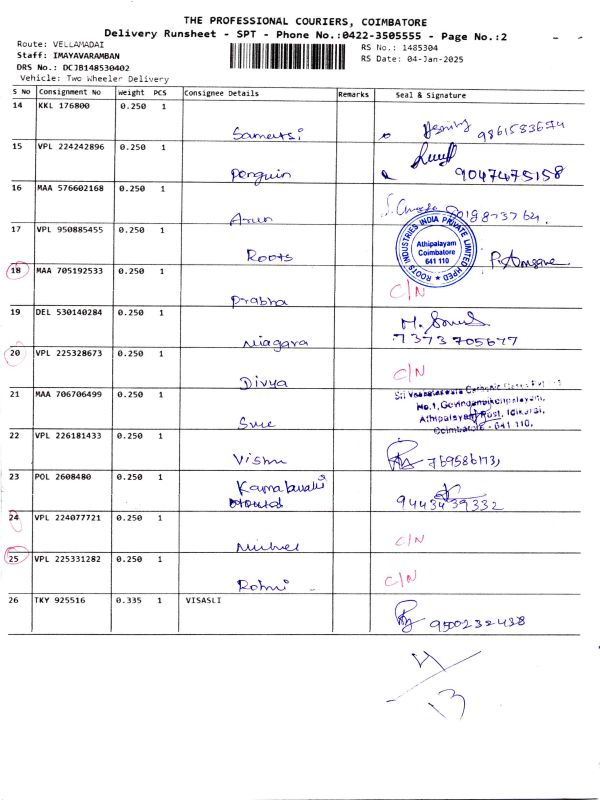 THE PROFESSIONAL COURIERS, COIMBATORE
Delivery Runsheet - SPT - Phone No.:0422-3505555 - Page No.:2
Route: VELLAMADAI
Staff: IMAYAVARAMBAN
DRS No.: DCJB148530402
Vehicle: Two Wheeler Delivery
RS No.: 1485304
RS Date: 04-Jan-2025
S No Consignment No Weight PCS Consignee Details Remarks Seal & Signature
14 KKL 176800 0.250 1
9861583674
15 VPL 224242896 0.250 1
Penguin 9047475158
16 MAA 576602168 0.250 1
Arun
17 VPL 950885455 0.250 1
Roots
ROOTS INDUSTRIES INDIA PRIVATE LIMITED
Athipalayam
Coimbatore
641 110
18 MAA 705192533 0.250 1
Prabha C/N
19 DEL 530140284 0.250 1
Niagara 7373705677
20 VPL 225328673 0.250 1
Divya C/N
21 MAA 706706499 0.250 1
No.1, Govindanaickenpalayam,
Athipalayam Post, Idikarai,
Coimbatore - 641 110.
22 VPL 226181433 0.250 1
Vishnu
23 POL 2608480 0.250 1
9443439332
24 VPL 224077721 0.250 1
C/N
25 VPL 225331282 0.250 1
C/N
26 TKY 925516 0.335 1 VISASLI
9500232438
4/13